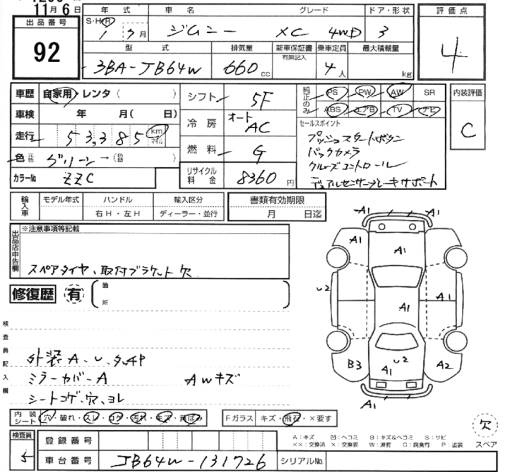 11月6日
出品番号 92
年式 車名 グレード ドア・形状 評価点
S・H・R 1 / 月 ジムニー XC 4WD 3 4
型式 排気量 新車保証書 有無記入 乗車定員 最大積載量
3BA-JB64W 660 cc 4人 kg
車歴 自家用・レンタ( )
車検 年 月( 日)
走行 53,385 km
色 グリーン→( )
カラーNo ZZC
シフト 5F
冷房 オート AC
燃料 G
リサイクル料金 8360 円
純正のみ PS PW AW SR
ABS エアB TV ナビ
セールスポイント
プッシュスタートボタン
バックカメラ
クルーズコントロール
デュアルセンサーブレーキサポート
内装評価 C
輸入車 モデル年式 ハンドル 輸入区分 書類有効期限
年 右H・左H ディーラー・並行 月 日迄
出品店申告欄 ※注意事項等記載
スペアタイヤ、取付ブラケット欠
修復歴 有 箇所
検査員記入欄
外装A.U.タッチP
ミラーカバーA AWキズ
シートコゲ穴、ヨレ
内装シート 穴・破れ・スレ・コゲ・
Fガラス キズ・飛石・×要す
A1 A1 A1 A1 A1 A1 A1 U2 U2 B3 A2 A1 A1
欠 スペア
A:キズ 凹:ヘコミ B:キズ&ヘコミ S:サビ
××:交換済 ×:交換要 W:波若 C:腐食 P:塗装
検査員 5 登録番号
車台番号 JB64W-131726 シリアルNo.